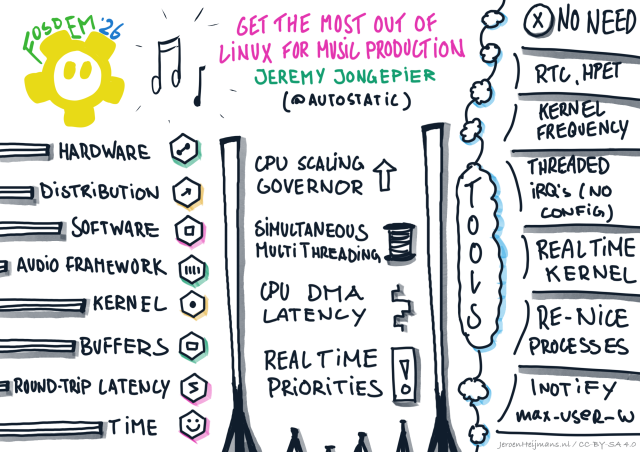 FOSDEM '26
GET THE MOST OUT OF
LiNUX FOR MUSiC PRODUCTiON
JEREMY JONGEPiER
(@AUTOSTATiC)
HARDWARE
DiSTRiBUTiON
SOFTWARE
AUDiO FRAMEWORK
KERNEL
BUFFERS
ROUND-TRiP LATENCY
TiME
CPU SCALiNG
GOVERNOR
SiMULTANEOUS
MULTiTHREADiNG
CPU DMA
LATENCY
REALTiME
PRiORiTiES
TOOLS
X NO NEED
RTC, HPET
KERNEL
FREQUENCY
THREADED
iRQ's (NO
CONFiG)
REALTiME
KERNEL
RE-NiCE
PROCESSES
INOTiFY
max-USER-W
JeroenHeijmans.nl / CC-BY-SA 4.0